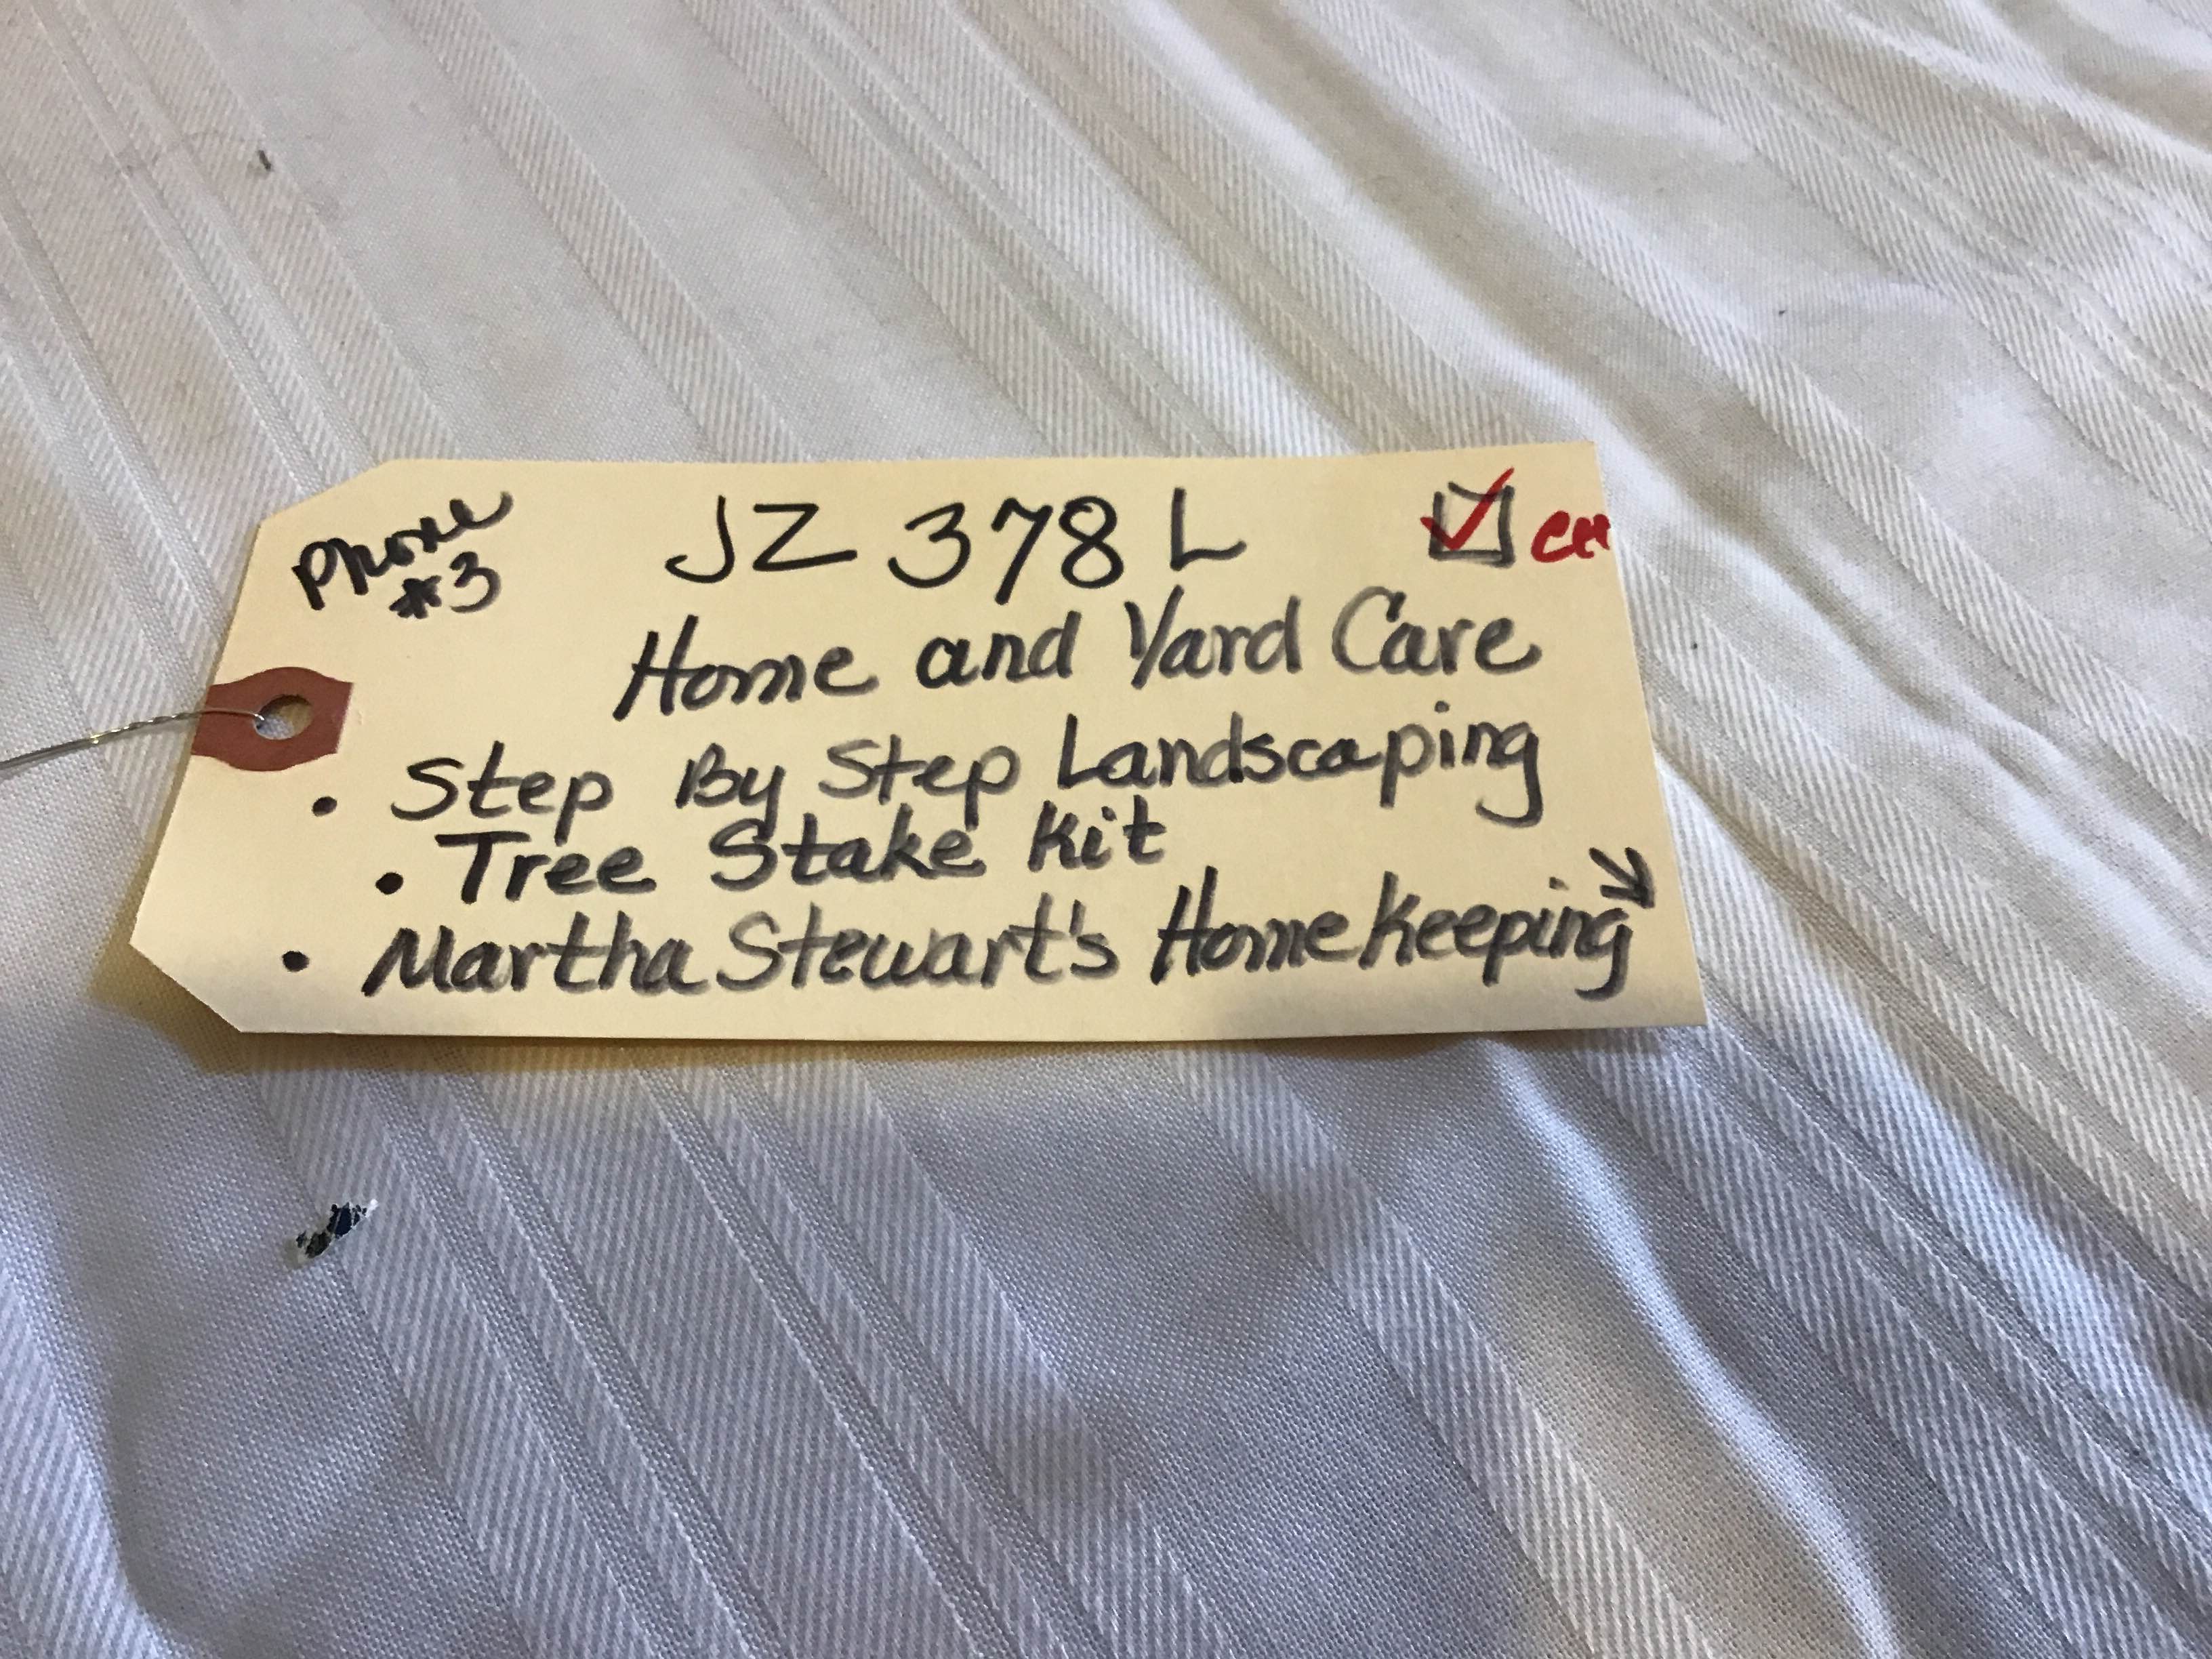 Phone
#3
JZ 378 L
Home and Yard Care
• Step By Step Landscaping
• Tree Stake Kit
• Martha Stewart's Homekeeping